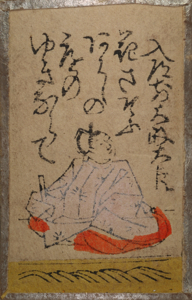 入道前太政大臣
花さそふ
あらしの
庭の
ゆきならて